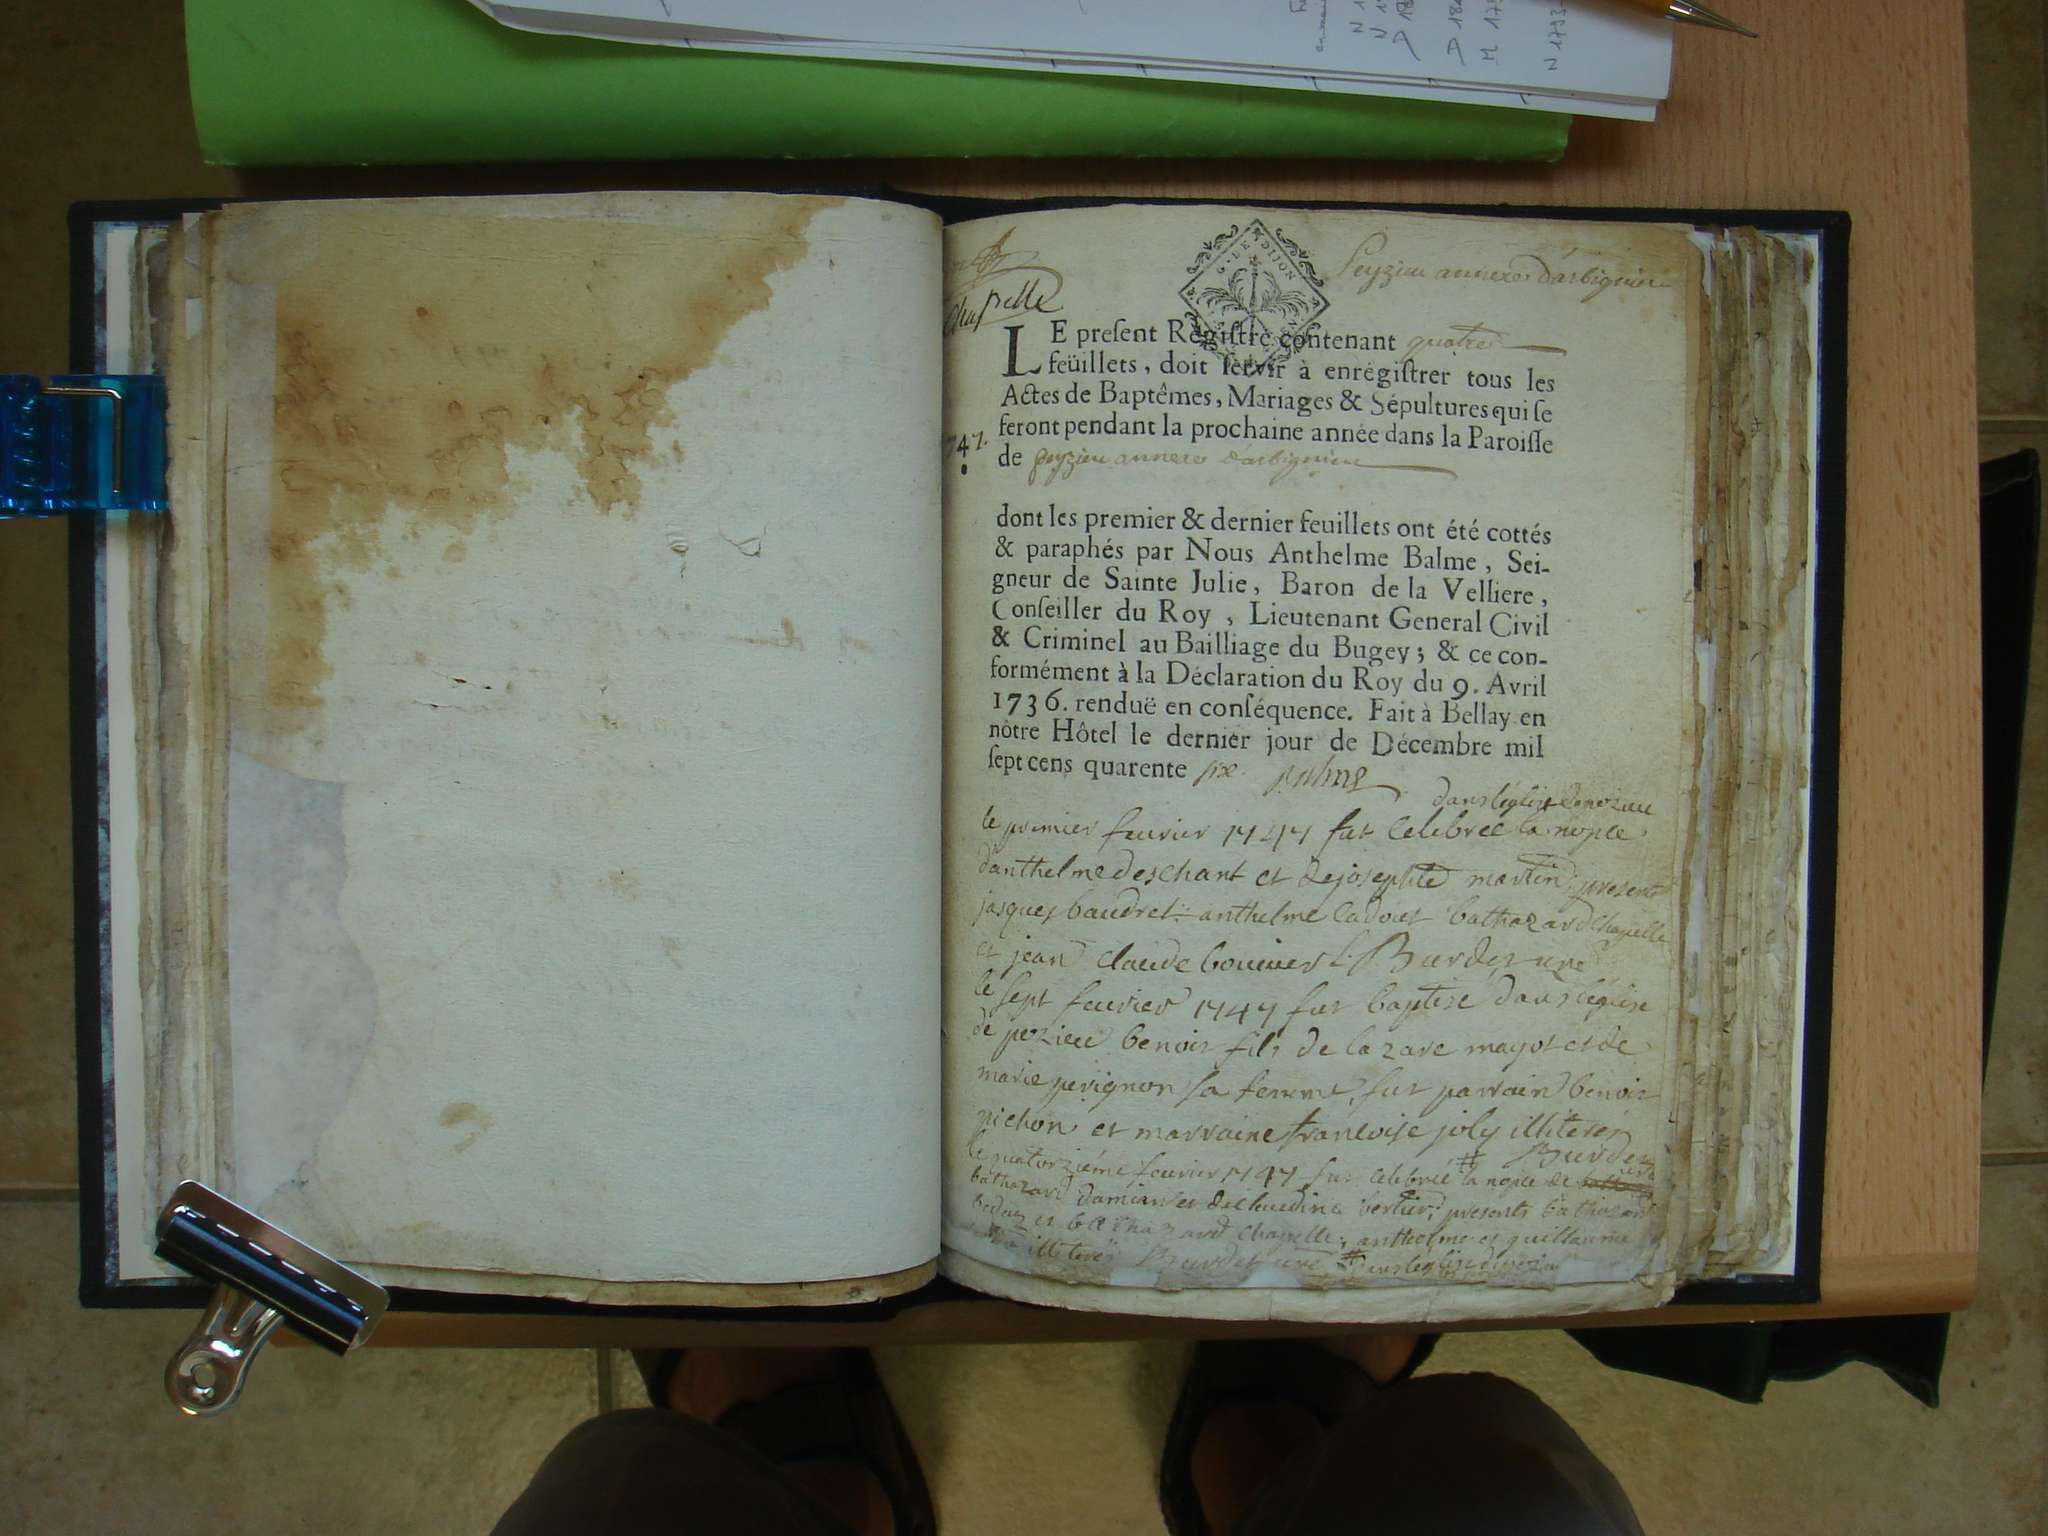 Chapelle
G. LE DIJON
Peyzieu annexe d'arbignieu
LE preſent Régiſtre contenant quatre
feüillets, doit ſervir à enrégiſtrer tous les
Actes de Baptêmes, Mariages & Sépultures qui ſe
feront pendant la prochaine année dans la Paroiſſe
747.
de peyzieu annexe d'arbignieu
dont les premier & dernier feuillets ont été cottés
& paraphés par Nous Anthelme Balme, Sei-
gneur de Sainte Julie, Baron de la Velliere,
Conſeiller du Roy, Lieutenant General Civil
& Criminel au Bailliage du Bugey; & ce con-
formément à la Déclaration du Roy du 9. Avril
1736. renduë en conſéquence. Fait à Bellay en
nôtre Hôtel le dernier jour de Décembre mil
ſept cens quarente six. Balme
dans l'église de pezieu
le premier feuvrier 1747 fut celebree la nopce
d'anthelme deschant et de josephte martin; presents
jasques baudret anthelme cadout bathazard chapelle
et jean claude bouuier Burdet curé
le sept feuvrier 1747 fut baptise dans léglise
de pezieu benois fils de lazare mayot et de
marie perignon sa femme, fut parrain benoit
pichon et marraine francoise joly illiteres
Burdet curé
le quatorziéme feuvrier 1747 fut celebrée la nopce de
bathazard damian et de claudine bertier; presents bathazard
bedaz et bathazard chapelle; anthelme et guillaume
illiteres Burdet curé # dans l'eglise de pezieu